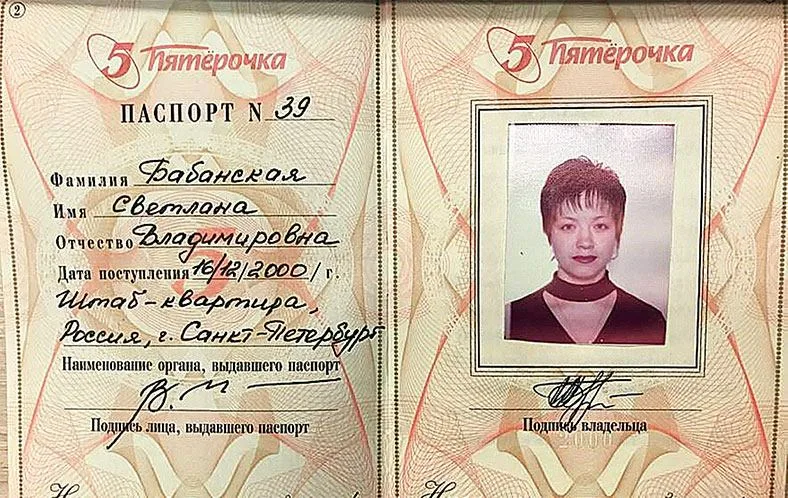 2
5 Пятёрочка
ПАСПОРТ N 39
Фамилия Бабанская
Имя Светлана
Отчество Владимировна
Дата поступления 16/12/2000/ г.
Штаб-квартира,
Россия, г. Санкт-Петербург
Наименование органа, выдавшего паспорт
Подпись лица, выдавшего паспорт
5 Пятёрочка
Подпись владельца
2000